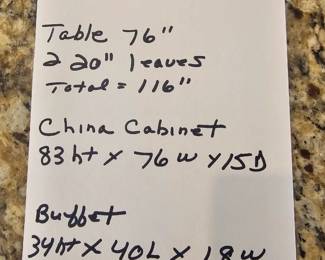 Table 76"
2 20" leaves
Total = 116"
China Cabinet
83 ht x 76 w x 15 D
Buffet
34 ht x 40 L x 18 w